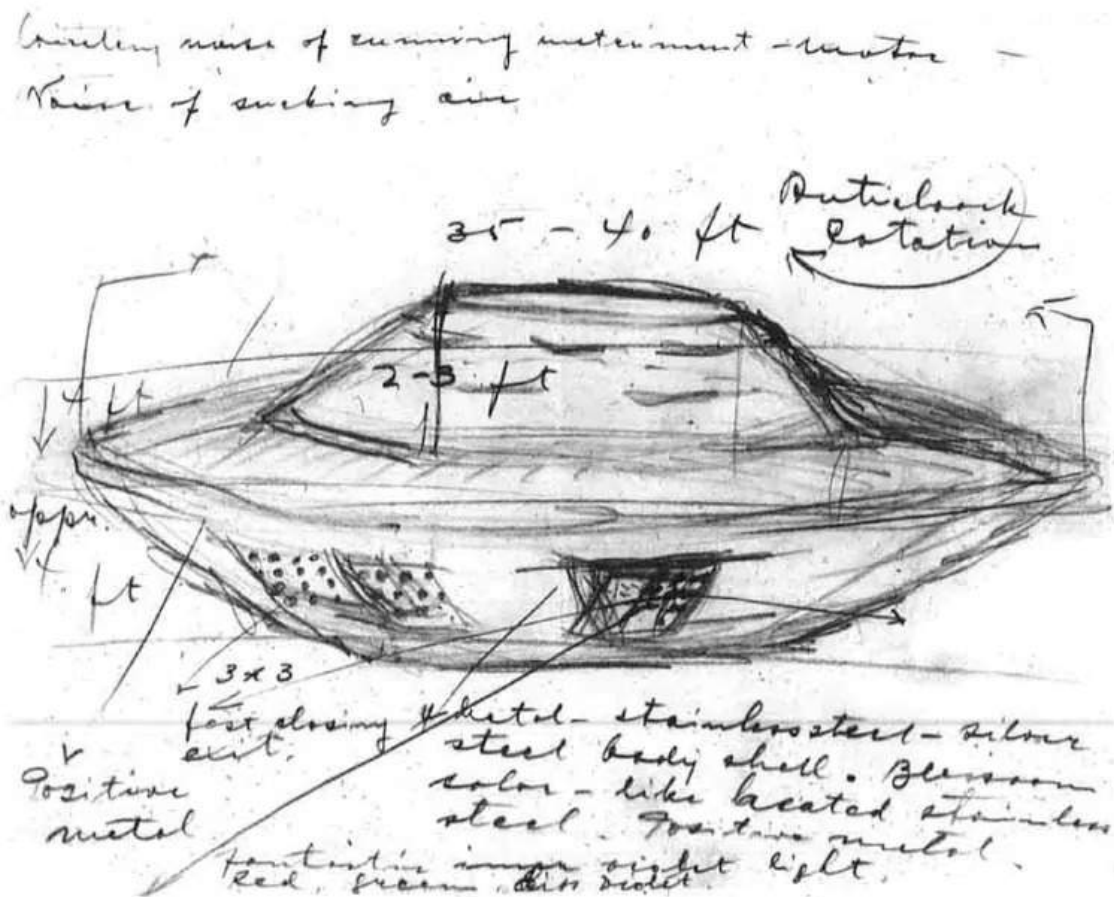 noise of running instrument - motor -
Noise of sucking air
Anticlock
rotation
35 - 40 ft
2-3 ft
4 ft
appr.
ft
3x3
fast closing
exit.
Positive
metal
Metal - stainless steel - silver
steel body shell. Blossom
color - like heated stainless
steel - Positive metal.
fantastic violet light.
Red, green, violet.